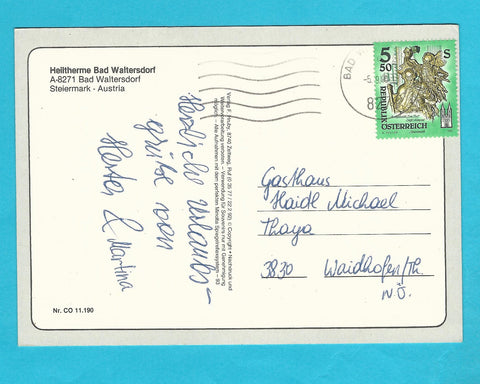 Heiltherme Bad Waltersdorf
A-8271 Bad Waltersdorf
Steiermark - Austria
Herzliche Urlaubs-
grüße von
& Martina
Gasthaus
Haidl Michael
Thaya
3830 Waidhofen/Th.
N.Ö.
BAD
5 50 S
REPUBLIK
ÖSTERREICH
Nr. CO 11.190